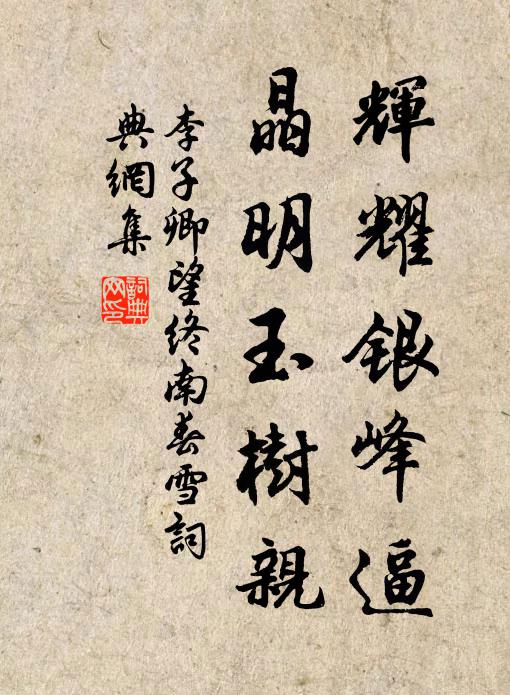 輝耀銀峰逼
晶明玉樹親
李子卿望終南春雪詞
典網集
詞典
网印